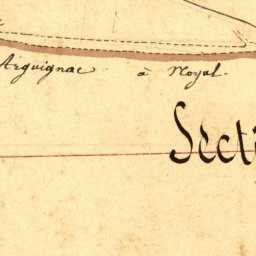 Arguignac à Noyal.
Secti